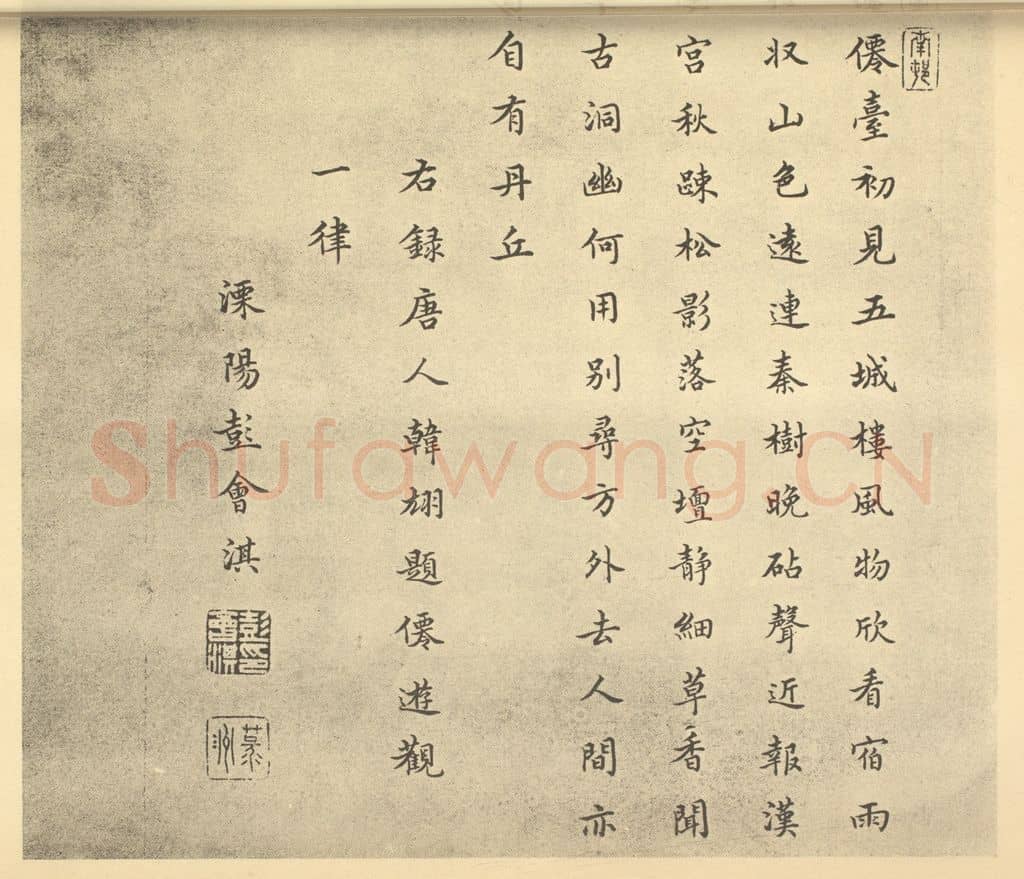 南邨
僊臺初見五城樓風物欣看宿雨
収山色遠連秦樹晚砧聲近報漢
宮秋踈松影落空壇静細草香聞
古洞幽何用别尋方外去人間亦
自有丹丘
右録唐人韓翃題僊遊觀
一律
溧陽彭會淇
彭印會淇
Shufawang.CN